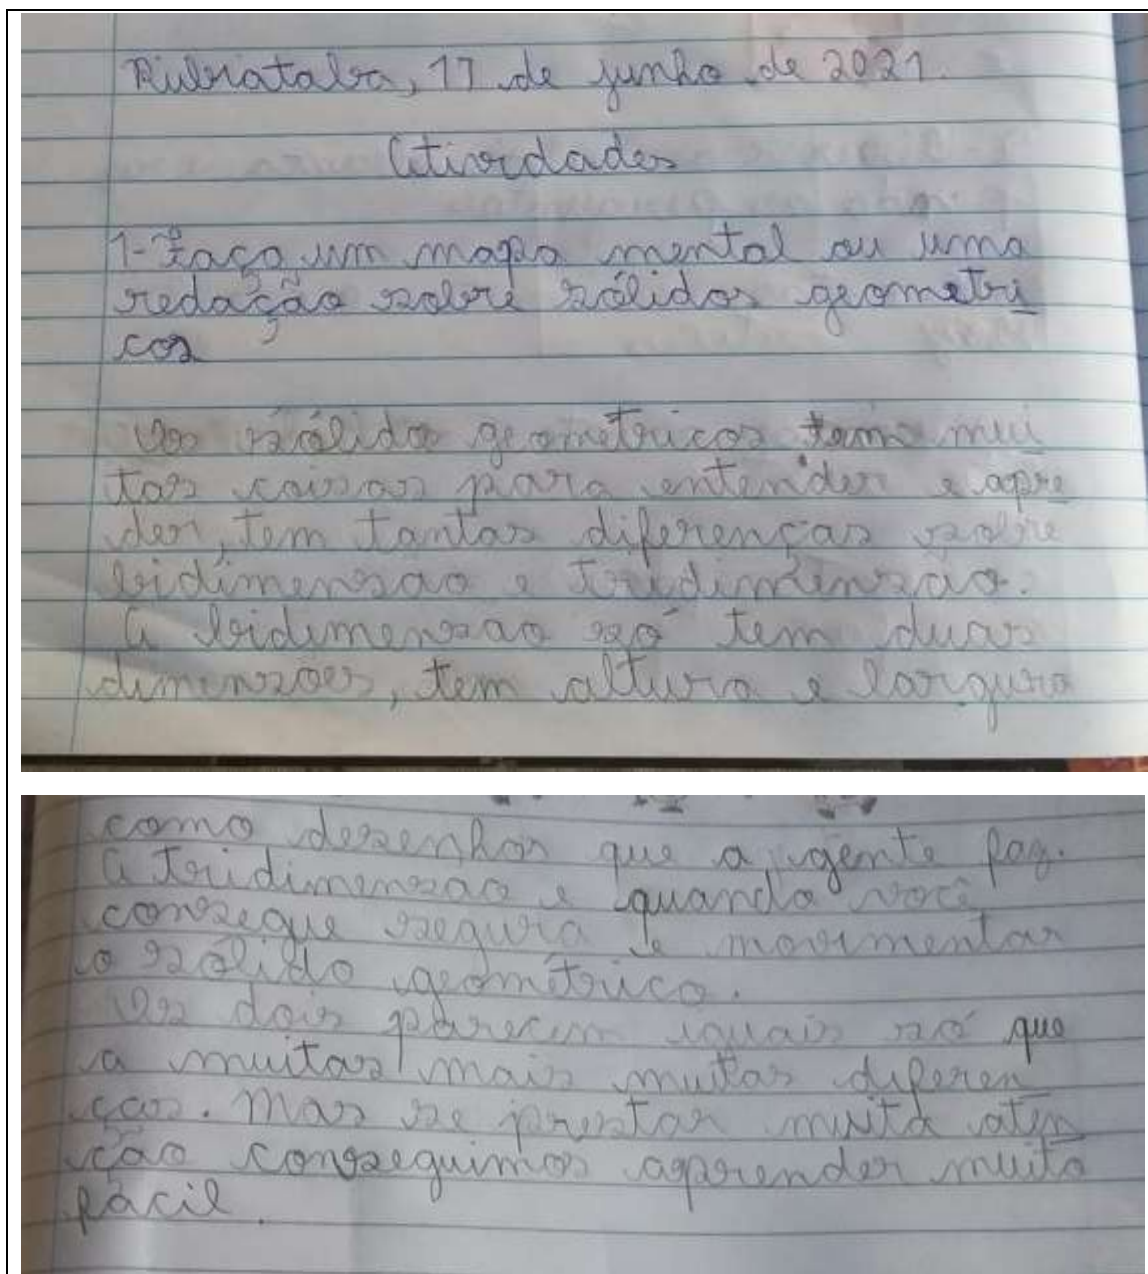 Rubiataba, 17 de junho de 2021.
Atividades
1-Faça um mapa mental ou uma
redação sobre sólidos geometri
cos
Os sólido geometricos tem mui
tas coisas para entender e apre
der, tem tantas diferenças sobre
bidimensao e tridimensão.
A bidimensao só tem duas
dimensões, tem altura e largura
como desenhos que a gente faz.
A tridimensao e quando você
consegue segura e movimentar
o sólido geométrico.
Os dois parecem iguais só que
a muitas mais muitas diferen
ças. Mas se prestar muita aten
ção conseguimos aprender muito
fácil.